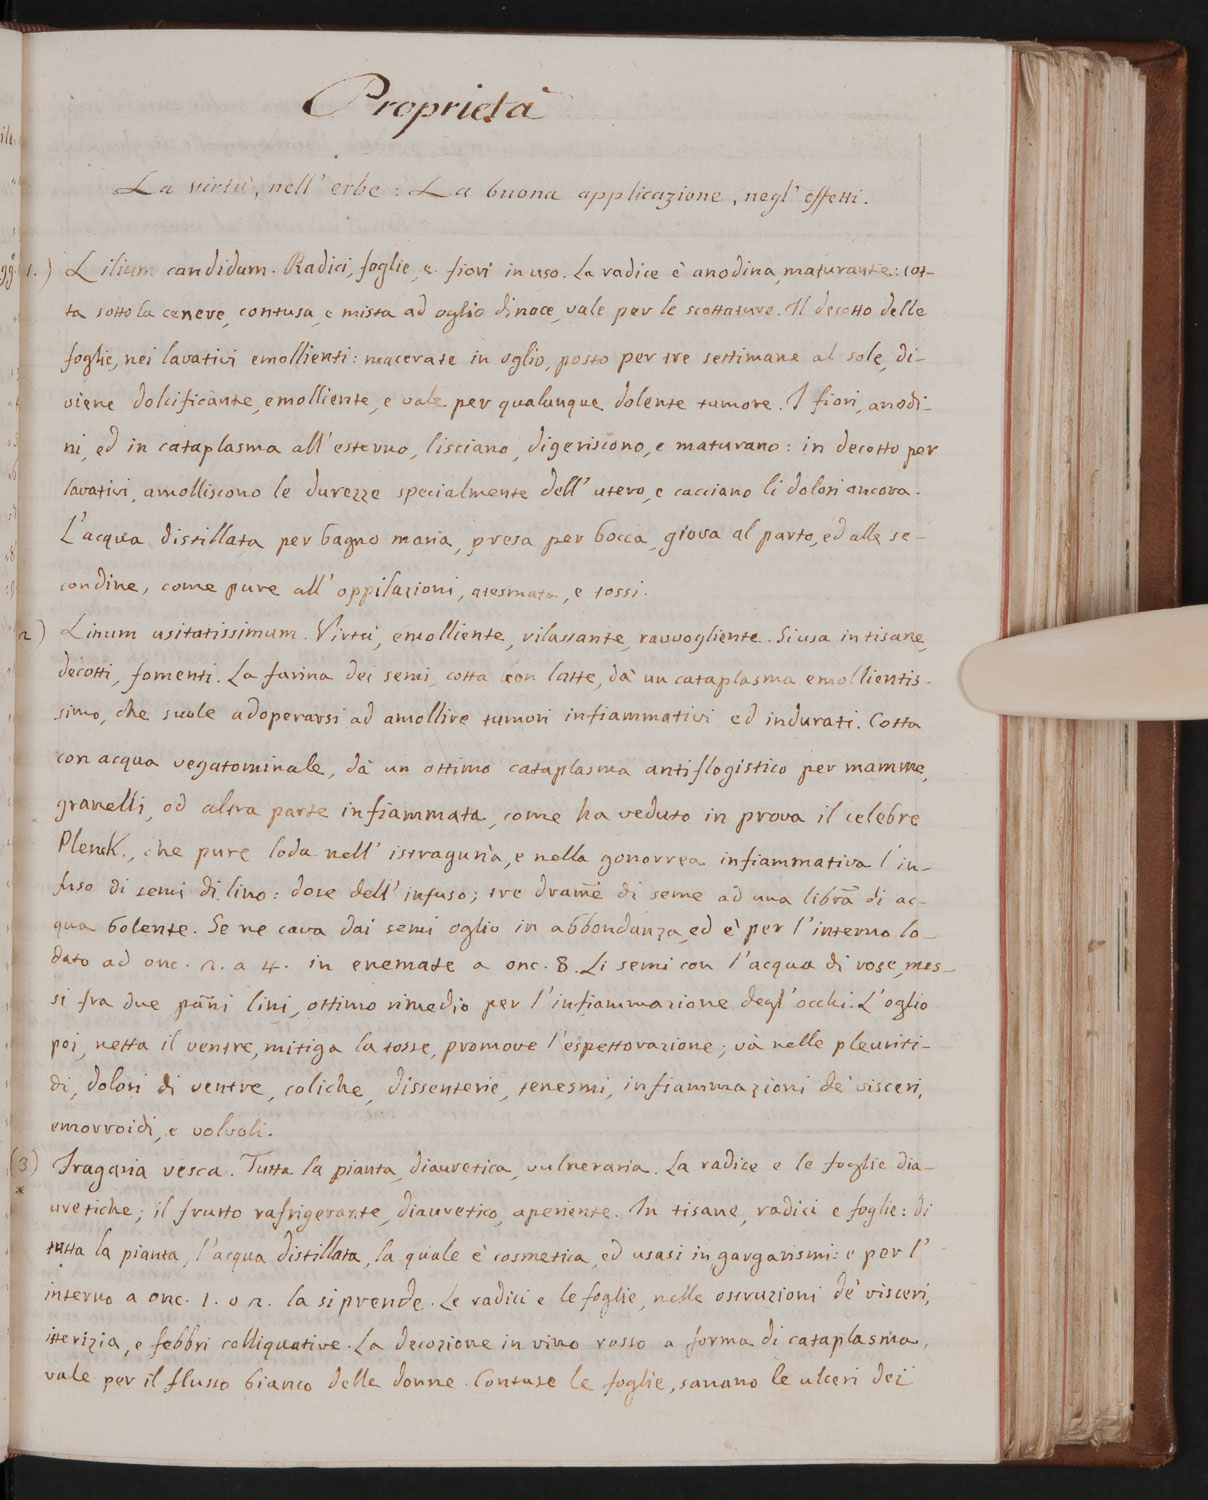 Proprietà
La virtù, nell' erbe: La buona applicazione, negl' effetti.
1.) Lilium candidum. Radici, foglie, e fiori in uso. La radice è anodina, maturante: cot-
ta sotto la cenere, contusa, e mista ad oglio di noce, vale per le scottature. Il decotto delle
foglie, nei lavativi emollienti: macerate in oglio, posto per tre settimane al sole, di-
viene dolcificante, emolliente, e vale per qualunque dolente tumore. I fiori, anodi-
ni, ed in cataplasma all' esterno, lisciano, digeriscono, e maturano: in decotto per
lavativi, amolliscono le durezze specialmente dell' utero, e cacciano li dolori ancora.
L'acqua distillata per bagno maria, presa per bocca, giova al parto, ed alle se-
condine, come pure all' oppilazioni, e tossi.
2) Linum usitatissimum. Virtù, emolliente, rilassante, ravvogliente. Si usa in tisane,
decotti, fomenti. La farina dei semi, cotta con latte, dà un cataplasma emollientis-
simo, che suole adoperarsi ad amollire tumori infiammativi ed indurati. Cotta
con acqua vegatominale, dà un ottimo cataplasma antiflogistico per mamme,
granelli, od altra parte infiammata, come ha veduto in prova il celebre
Plenck., che pure loda nell' istraguria, e nella gonorrea infiammativa l'in-
fuso di semi di lino: dose dell' infuso; tre dram̄e di seme ad una libr̄a di ac-
qua bolente. Se ne cava dai semi oglio in abbondanza, ed è per l'interno lo-
dato ad onc. 2. a 4. in enemate a onc. 8. Li semi con l'acqua di rose, mes-
si fra due pan̄i lini, ottimo rimedio per l'infiammazione degl' occhi. L'oglio
poi, netta il ventre, mitiga la tosse, promove l'espettorazione; và nelle pleuriti-
di, dolori di ventre, coliche, dissenterie, tenesmi, infiammazioni de' visceri,
emorroidi, e volvoli.
(3) Fragaria vesca. Tutta la pianta, diauretica, vulneraria. La radice e le foglie dia-
* uretiche; il frutto rafrigerante, diauretico, aperiente. In tisane, radici e foglie: di
tutta la pianta, l'acqua distillata, la quale è cosmetica, ed usasi in gargarismi: e per l'
interno a onc. 1. o 2. la si prende. Le radici e le foglie, nelle ostruzioni de' visceri,
itterizia, e febbri colliquative. La decozione in vino rosso a forma di cataplasma,
vale per il flusso bianco delle donne. Contuse le foglie, sanano le ulceri dei